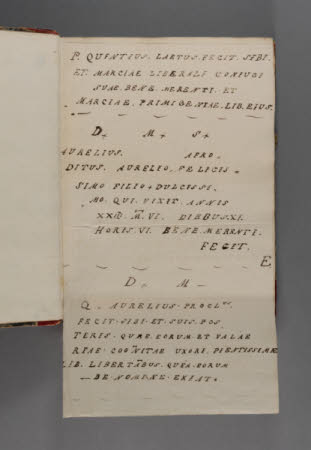 P. QUINTIUS. LAETUS. FECIT. SIBI.
ET. MARCIAE LIBERALI CONIUGI
SUAE. BENE. MERENTI. ET
MARCIAE. PRIMIGENIAE. LIB. EIUS.
D+ M+ S+
AURELIUS. APRO-
DITUS. AURELIO. FELICIS-
SIMO FILIO + DULCISSI.
MO. QUI. VIXIT. ANNIS
M. VI. DIEBUS. XI.
HORIS. VI. BENE MERENTI.
FECIT.
E
D. M -
Q. AURELIUS. PROCLUS.
FECIT. SIBI. ET. SUIS. POS
TERIS. EORUM. ET VALAE
RIAE. UXORI. PIENTISSIMAE
LIB. LIBERTABUS. EORUM
DE NOMINE. EXIAT.